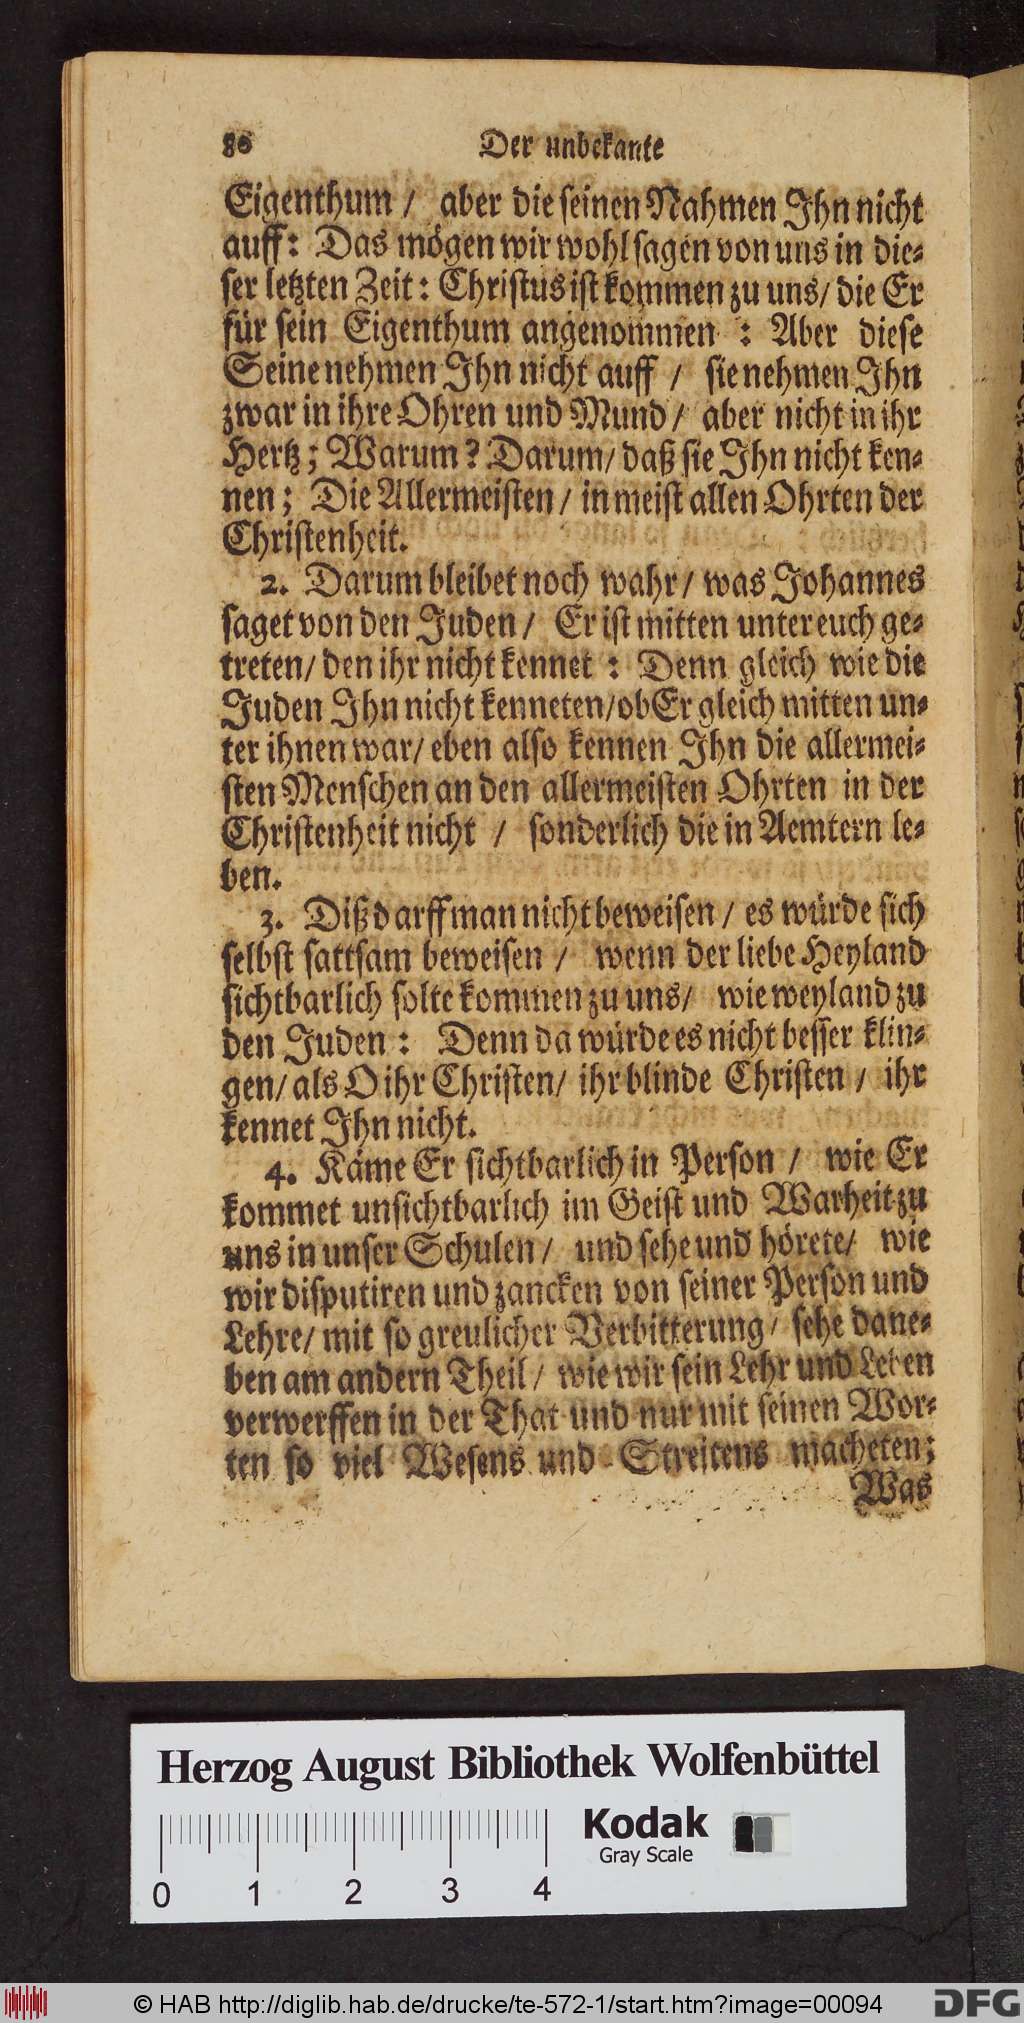 86 Der unbekante
Eigenthum / aber die seinen Nahmen Ihn nicht
auff: Das mögen wir wohl sagen von uns in die-
ser letzten Zeit: Christus ist kommen zu uns/ die Er
für sein Eigenthum angenommen : Aber diese
Seine nehmen Ihn nicht auff / sie nehmen Ihn
zwar in ihre Ohren und Mund / aber nicht in ihr
Hertz; Warum? Darum/ daß sie Ihn nicht ken-
nen; Die Allermeisten / in meist allen Ohrten der
Christenheit.
2. Darum bleibet noch wahr/ was Johannes
saget von den Juden / Er ist mitten unter euch ge-
treten/ den ihr nicht kennet : Denn gleich wie die
Juden Ihn nicht kenneten/ ob Er gleich mitten un-
ter ihnen war/ eben also kennen Ihn die allermei-
sten Menschen an den allermeisten Ohrten in der
Christenheit nicht / sonderlich die in Aemtern le-
ben.
3. Diß darff man nicht beweisen / es würde sich
selbst sattsam beweisen / wenn der liebe Heyland
sichtbarlich solte kommen zu uns/ wie weyland zu
den Juden : Denn da würde es nicht besser klin-
gen/ als O ihr Christen/ ihr blinde Christen / ihr
kennet Ihn nicht.
4. Käme Er sichtbarlich in Person / wie Er
kommet unsichtbarlich im Geist und Warheit zu
uns in unser Schulen / und sehe und hörete/ wie
wir disputiren und zancken von seiner Person und
Lehre/ mit so greulicher Verbitterung/ sehe dane-
ben am andern Theil / wie wir sein Lehr und Leben
verwerffen in der That und nur mit seinen Wor-
ten so viel Wesens und Streitens macheten;
Was
Herzog August Bibliothek Wolfenbüttel
Kodak
Gray Scale
0 1 2 3 4
© HAB http://diglib.hab.de/drucke/te-572-1/start.htm?image=00094
DFG